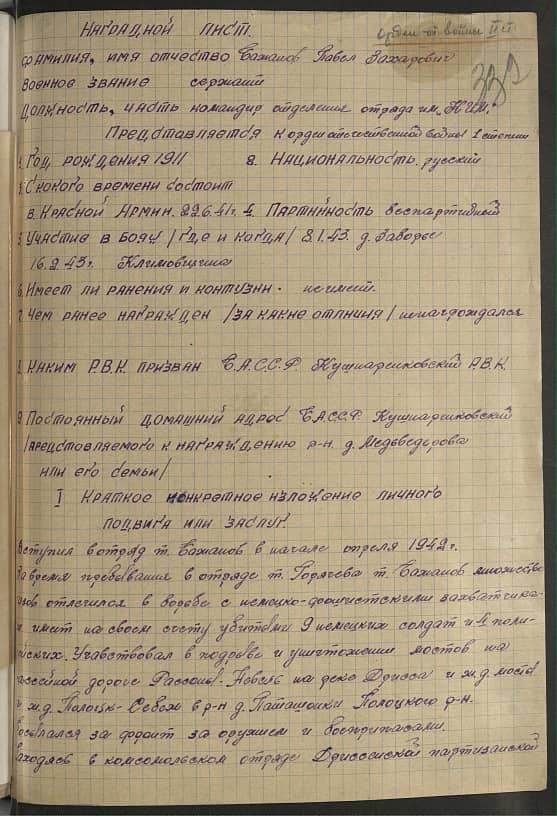 Орден от. войны II ст.
332
Наградной лист.
Фамилия, имя отчество Бажанов Павел Захарович
Военное звание сержант
Должность, часть командир отделения отряда им. "КИМ"
Представляется к ордену отечественной войны 1 степени
1. Год рождения 1911 2. Национальность. русский
3. С какого времени состоит
в Красной Армии. 22.6.41 г. 4. Партийность беспартийный
5. Участие в боях /где и когда/ 8.1.43. д. Заборье
16.2.43 г. Климовщина
6. Имеет ли ранения и контузии. не имеет.
7. Чем ранее награжден /за какие отличия/ не награждался
8. Каким Р.В.К. призван Б.А.С.С.Р. Кушнаренковский Р.В.К.
9. Постоянный домашний адрес Б.А.С.С.Р. Кушнаренковский
/представляемого к награждению р-н. д.
или его семьи/
I Краткое конкретное изложение личного
подвига или заслуг.
Вступил в отряд т. Бажанов в начале апреля 1942 г.
За время пребывания в отряде т. Горячева т. Бажанов множество
разов отлечился в борьбе с немецко-фашистскими захватчика-
ми имеет на своем счету убитыми 9 немецких солдат и 4 поли-
цейских. Учавствовал в подрыве и уничтожении мостов на
шассейной дороге Россоны-Невель на реке Дрисса и ж.д. моста
ж.д. Полоцк-Себеж в р-н д. Полоцкого р-н.
Посылался за фронт за оружием и боеприпасами.
Находясь в комсомольском отряде Дриссенской партизанской